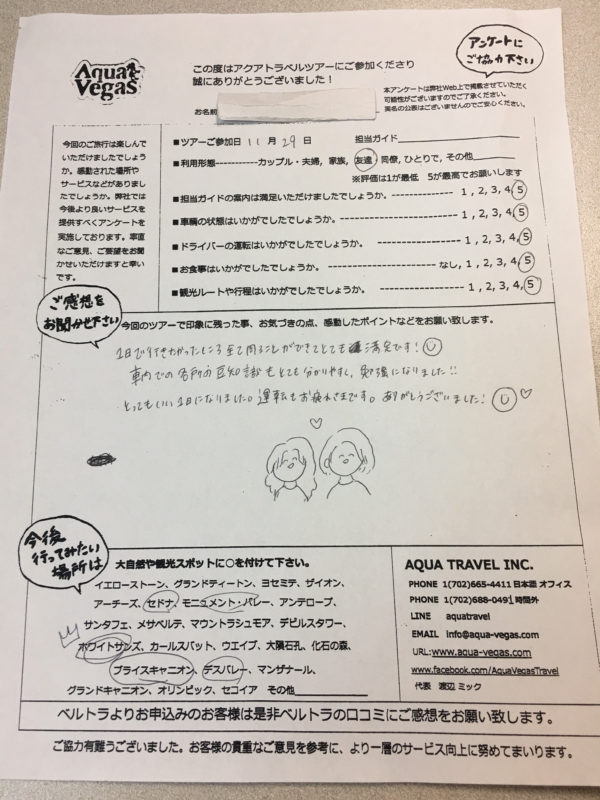 Aqua Vegas
この度はアクアトラベルツアーにご参加くださり
誠にありがとうございました!
アンケートに
ご協力下さい
お名前
本アンケートは弊社Web上で掲載させていただく
可能性がございますのでご了承ください。
実名の公表はございませんのでご安心ください。
今回のご旅行は楽しんで
いただけましたでしょう
か。感動された場所や
サービスなどがありまし
たでしょうか。弊社では
今後より良いサービスを
提供すべくアンケートを
実施しております。率直
なご意見、ご要望をお聞
かせいただけますと幸い
です。
■ツアーご参加日 11 月 29 日 担当ガイド
■利用形態-----------カップル・夫婦, 家族, 友達・同僚, ひとりで, その他
※評価は1が最低 5が最高でお願いします
■担当ガイドの案内は満足いただけましたでしょうか。------------ 1 , 2, 3, 4, 5
■車輌の状態はいかがでしたでしょうか。-------------------- 1 , 2, 3, 4, 5
■ドライバーの運転はいかがでしたでしょうか。 ------------------ 1 , 2, 3, 4, 5
■お食事はいかがでしたでしょうか。 ------------------ なし, 1, 2, 3, 4, 5
■観光ルートや行程はいかがでしたでしょうか。 ------------------ 1 , 2, 3, 4, 5
ご感想を
お聞かせ下さい
今回のツアーで印象に残った事、お気づきの点、感動したポイントなどをお願い致します。
1日で行きたかったところ全て周ることができてとても満足です!
車内での名所の豆知識もとても分かりやすく、勉強になりました!!
とってもいい1日になりました。運転もお疲れさまです。ありがとうございました!
今後
行ってみたい
場所は
大自然や観光スポットに○を付けて下さい。
イエローストーン、グランドティートン、ヨセミテ、ザイオン、
アーチーズ、セドナ、モニュメント・バレー、アンテロープ、
サンタフェ、メサベルデ、マウントラシュモア、デビルスタワー、
ホワイトサンズ、カールスバット、ウエイブ、大隕石孔、化石の森、
ブライスキャニオン、デスバレー、マンザナール、
グランドキャニオン、オリンピック、セコイア その他
AQUA TRAVEL INC.
PHONE 1(702)665-4411日本語 オフィス
PHONE 1(702)688-0491時間外
LINE aquatravel
EMAIL info@aqua-vegas.com
URL:www.aqua-vegas.com
www.facebook.com/AquaVegasTravel
代表 渡辺 ミック
ベルトラよりお申込みのお客様は是非ベルトラの口コミにご感想をお願い致します。
ご協力有難うございました。お客様の貴重なご意見を参考に、より一層のサービス向上に努めてまいります。